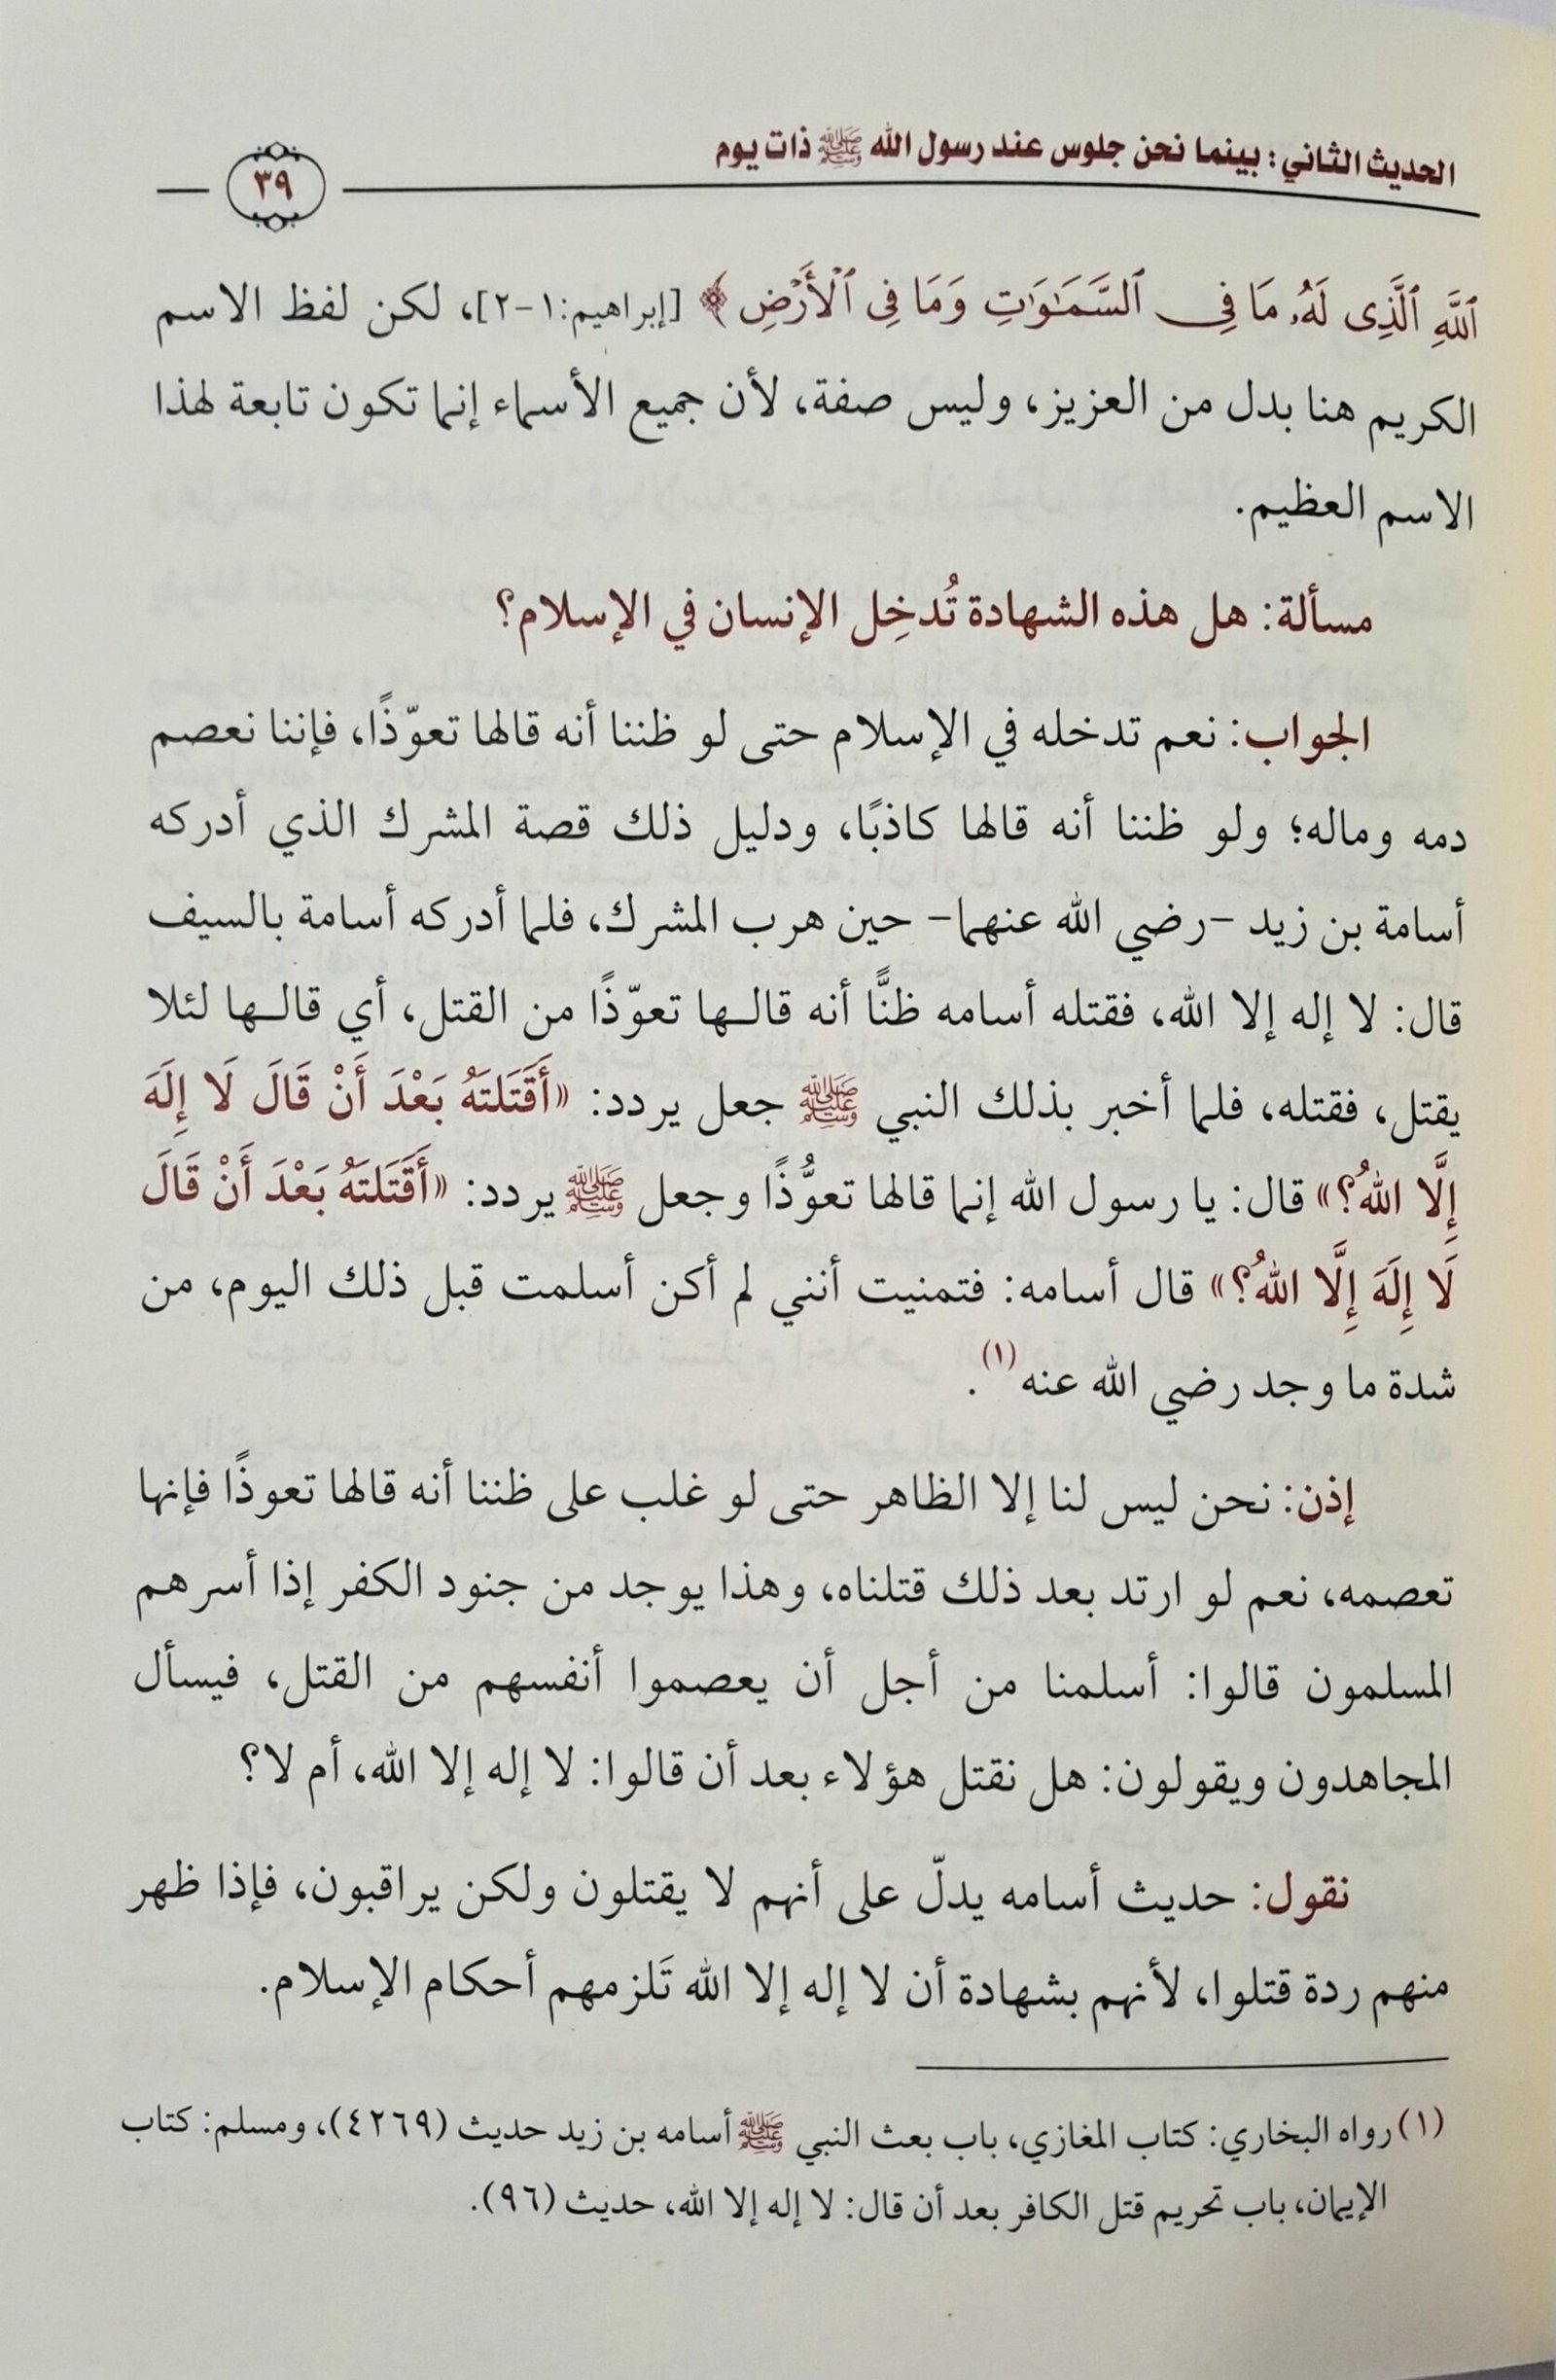 الحديث الثاني: بينما نحن جلوس عند رسول الله ﷺ ذات يوم
٣٩
ٱللَّهِ ٱلَّذِى لَهُۥ مَا فِى ٱلسَّمَـٰوَٰتِ وَمَا فِى ٱلْأَرْضِ ﴾ [إبراهيم:١-٢]، لكن لفظ الاسم
الكريم هنا بدل من العزيز، وليس صفة، لأن جميع الأسماء إنما تكون تابعة لهذا
الاسم العظيم.
مسألة: هل هذه الشهادة تُدخِل الإنسان في الإسلام؟
الجواب: نعم تدخله في الإسلام حتى لو ظننا أنه قالها تعوّذًا، فإننا نعصم
دمه وماله؛ ولو ظننا أنه قالها كاذبًا، ودليل ذلك قصة المشرك الذي أدركه
أسامة بن زيد -رضي الله عنهما- حين هرب المشرك، فلما أدركه أسامة بالسيف
قال: لا إله إلا الله، فقتله أسامه ظنًّا أنه قالـها تعوّذًا من القتل، أي قالـها لئلا
يقتل، فقتله، فلما أخبر بذلك النبي ﷺ جعل يردد: «أَقَتَلتَهُ بَعْدَ أَنْ قَالَ لَا إِلَهَ
إِلَّا اللهُ؟» قال: يا رسول الله إنما قالها تعوُّذًا وجعل ﷺ يردد: «أَقَتَلتَهُ بَعْدَ أَنْ قَالَ
لَا إِلَهَ إِلَّا اللهُ؟» قال أسامه: فتمنيت أنني لم أكن أسلمت قبل ذلك اليوم، من
شدة ما وجد رضي الله عنه(١).
إذن: نحن ليس لنا إلا الظاهر حتى لو غلب على ظننا أنه قالها تعوذًا فإنها
تعصمه، نعم لو ارتد بعد ذلك قتلناه، وهذا يوجد من جنود الكفر إذا أسرهم
المسلمون قالوا: أسلمنا من أجل أن يعصموا أنفسهم من القتل، فيسأل
المجاهدون ويقولون: هل نقتل هؤلاء بعد أن قالوا: لا إله إلا الله، أم لا؟
نقول: حديث أسامه يدلّ على أنهم لا يقتلون ولكن يراقبون، فإذا ظهر
منهم ردة قتلوا، لأنهم بشهادة أن لا إله إلا الله تَلزمهم أحكام الإسلام.
(١) رواه البخاري: كتاب المغازي، باب بعث النبي ﷺ أسامه بن زيد حديث (٤٢٦٩)، ومسلم: كتاب
الإيمان، باب تحريم قتل الكافر بعد أن قال: لا إله إلا الله، حديث (٩٦).